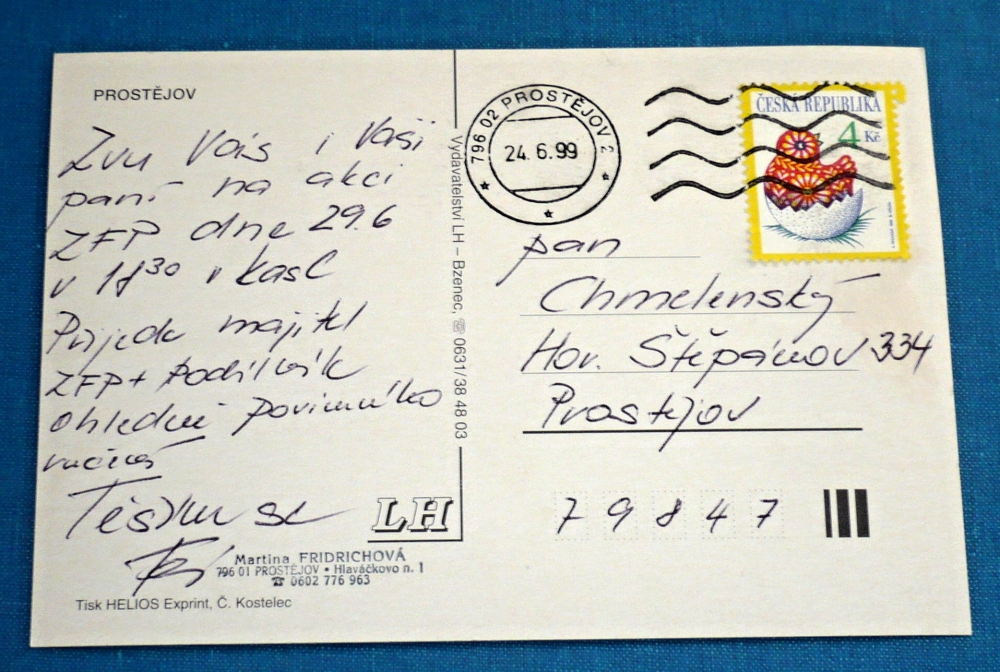 PROSTĚJOV
Zvu Vás i Vaši
paní na akci
ZFP dne 29.6
v 18³⁰ v kasC
Přijede majitel
ZFP + Podílník
ohledně povinného
ručení
Těším se
LH
Martina FRIDRICHOVÁ
796 01 PROSTĚJOV • Hlaváčkovo n. 1
☎ 0602 776 963
Tisk HELIOS Exprint, Č. Kostelec
Vydavatelství LH – Bzenec, ☏ 0631/38 48 03
796 02 PROSTĚJOV 2
24.6.99
ČESKÁ REPUBLIKA
4 Kč
pan
Chmelenský
Hor. Štěpánov 334
Prostějov
79847